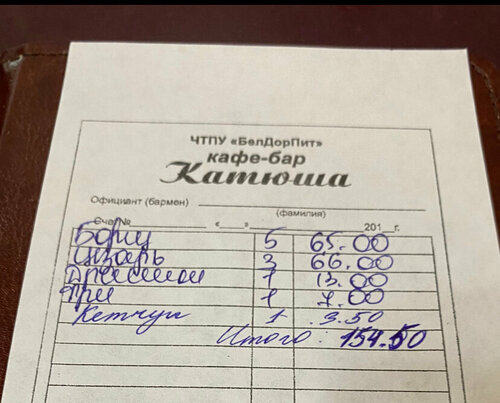 ЧТПУ «БелДорПит»
кафе-бар
Катюша
Официант (бармен)
(фамилия)
Счет № «__» 201__г.
Борщ 5 65.00
Цезарь 3 66.00
1 13.00
Гри 1 7.00
Кетчуп 1 3.50
Итого: 154.50